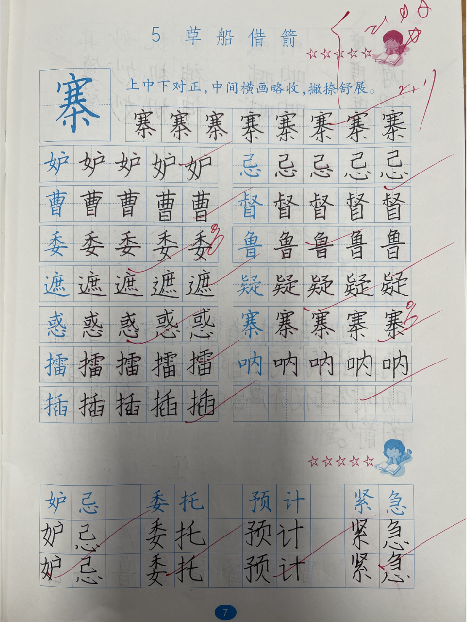 5 草船借箭
寨
上中下对正，中间横画略收，撇捺舒展。
寨寨寨寨寨寨寨寨
妒妒妒妒妒 忌忌忌忌忌
曹曹曹曹曹 督督督督督
委委委委委 鲁鲁鲁鲁鲁
遮遮遮遮遮 疑疑疑疑疑
惑惑惑惑惑 寨寨寨寨寨
擂擂擂擂擂 呐呐呐呐呐
插插插插插
妒忌 委托 预计 紧急
妒忌 委托 预计 紧急
妒忌 委托 预计 紧急
7